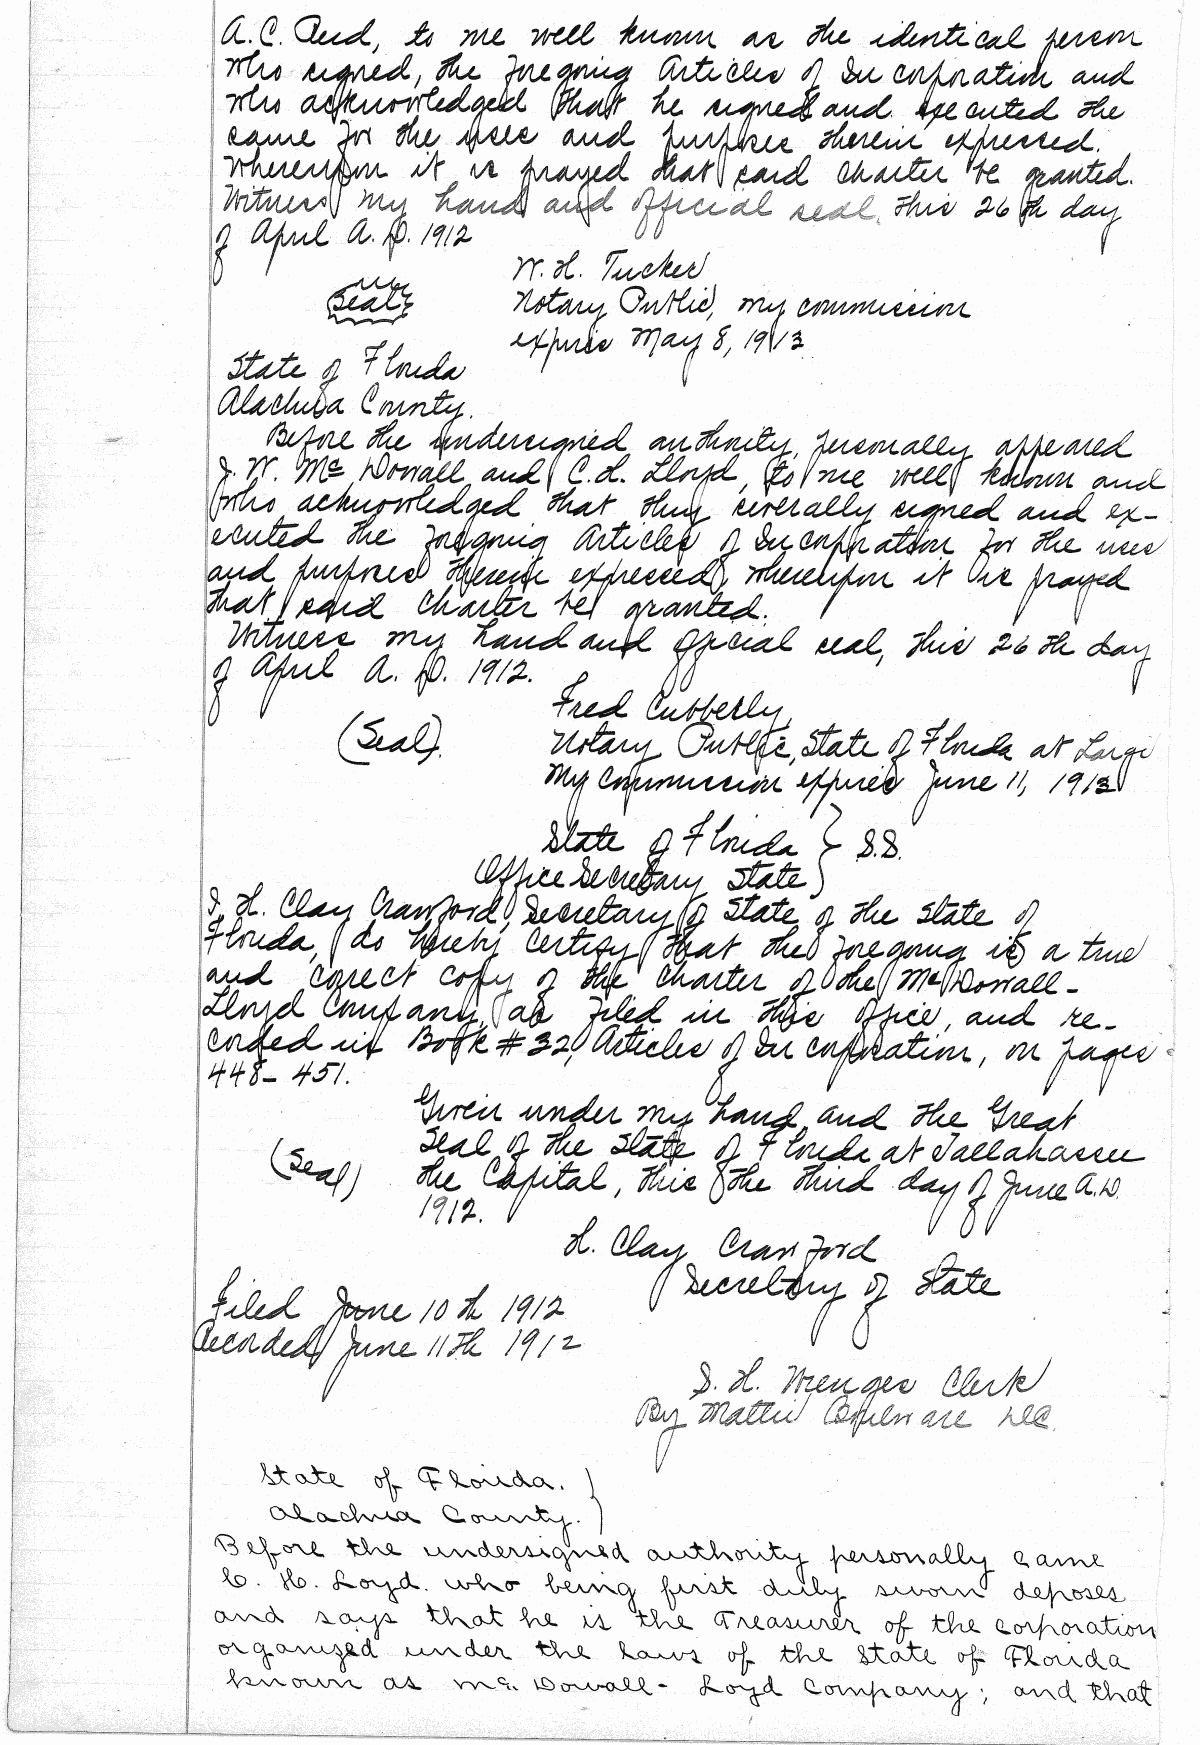 A.C. Reid, to me well known as the identical person
who signed, the foregoing Articles of Incorporation and
who acknowledged that he signed and executed the
same for the uses and purposes therein expressed.
Whereupon it is prayed that said Charter be granted.
Witness my hand and official seal, this 26th day
of April A.D. 1912
W. H. Tucker
(Seal) Notary Public, my commission
expires May 8, 1913
State of Florida
Alachua County.
Before the undersigned authority, personally appeared
J. W. McDowall and C.H. Lloyd, to me well known and
who acknowledged that they severally signed and ex-
ecuted the foregoing Articles of Incorporation for the uses
and purposes therein expressed, whereupon it is prayed
that said Charter be granted.
Witness my hand and official seal, this 26th day
of April A. D. 1912.
Fred Cubberly,
(Seal). Notary Public, State of Florida at Large
My commission expires June 11, 1913
State of Florida } S.S.
Office Secretary State
I, H. Clay Crawford, Secretary of State of the State of
Florida, do hereby certify that the foregoing is a true
and correct copy of the charter of the McDowall-
Lloyd Company, as filed in this office, and re-
corded in Book #32, Articles of Incorporation, on pages
448-451.
Given under my hand and the Great
Seal of the State of Florida at Tallahassee
(Seal) the Capital, this the third day of June A.D.
1912.
H. Clay Crawford
Secretary of State
Filed June 10th 1912
Recorded June 11th 1912
S. H. Wienges Clerk
By Mattie Boulware D.C.
State of Florida. }
Alachua County.
Before the undersigned authority personally came
C. H. Loyd. who being first duly sworn deposes
and says that he is the Treasurer of the corporation
organized under the laws of the State of Florida
known as Mc. Dowall- Loyd Company; and that